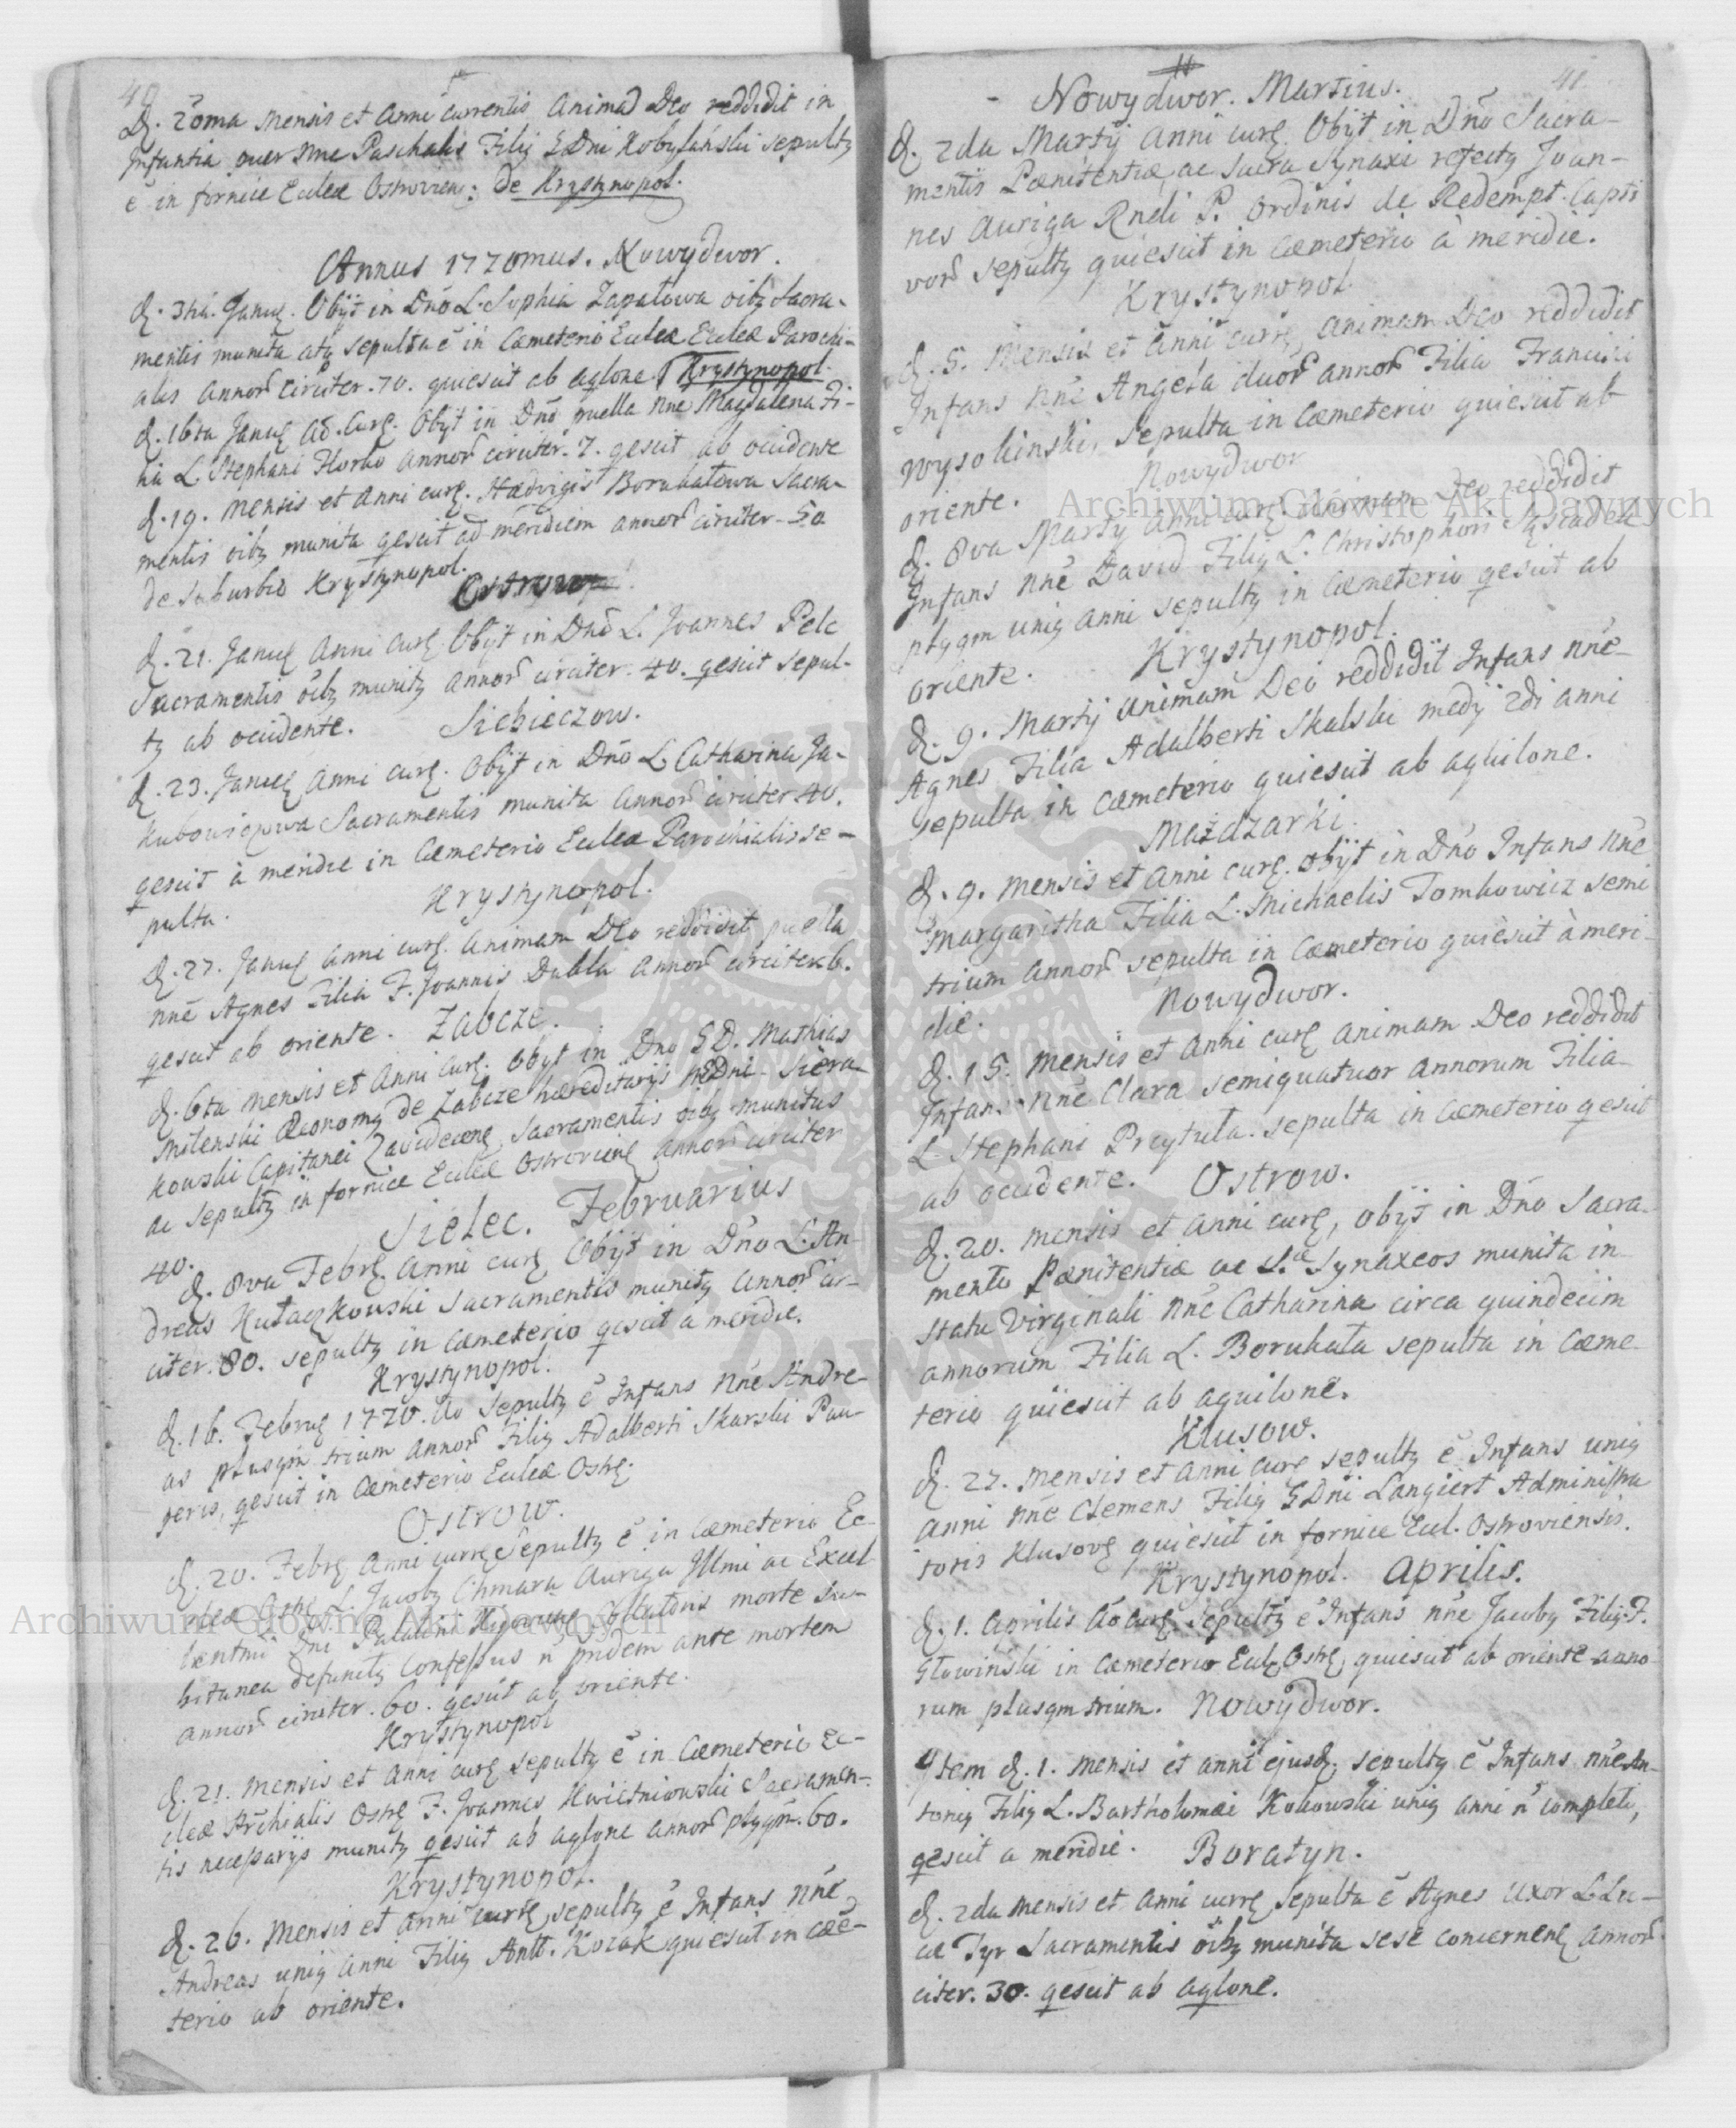 40
D. 20ma Mensis et Anni currentis Animã Deo reddidit in
Infantia puer nne Paschalis Filiꝯ GDni Kobylański sepultꝯ
ẽ in fornice Ecclæ Ostrovien: De Krystynopol.
Annus 1770mus. Nowydwor.
D. 3tia. Januę. Obijt in Dnõ L. Sophia Zapałowa oibꝯ Sacra-
mentis munita atq sepulta ẽ in Cæmeterio Ecclæ Ecclæ Parochi-
alis annoŕ circiter. 70. quiescit ab aglone Krystynopol.
D. 16ta Januę Aõ. Curę. Obijt in Dnõ puella nne Magdalena Fi-
lia L. Stephani Horko annoŕ circiter. 7. qescit ab occidente
D. 19. Mensis et Anni curę. Hedvigis Borukatowa Sacra-
mentis oibꝯ munita qescit ad meridiem annoŕ circiter. 50
de suburbio Krystynopol.
Ostrow
D. 21. Januę Anni Curę. Obijt in Dnõ L. Joannes Pelc
Sacramentis oibꝯ munitꝯ annoŕ circiter. 40. qescit sepul-
tꝯ ab occidente. Sichieczow.
D. 23. Januę Anni curę. Obijt in Dnõ L. Catharina Ja-
kubowiczowa Sacramentis munita annoŕ circiter 40.
qescit à meridie in Cæmeterio Ecclæ Parochialis se-
pulta. Krystynopol.
D. 27. Januę Anni curę. Animam Deo reddidit puella
nne Agnes Filia F. Joannis Dubla annoŕ circiter. 6.
qescit ab oriente. Zabcze.
D. 6ta mensis et Anni curę. Obijt in Dno GD. Mathias
Milenski Œconomꝯ de Zabcze hæreditarijs MDni Siera-
kowski Capitanei Zavidecenę Sacramentis oibꝯ munitus
ac sepultꝯ in fornice Ecclæ Ostrovienę annoŕ circiter
40. Sielec. Februarius
D. 8va Febrę. Anni curę Obijt in Dno L. An-
dreas Kułaczkowski Sacramentis munitꝯ annoŕ cir-
citer. 80. sepultꝯ in Cæmeterio qescit a meridie.
Krystynopol.
D. 16. Februę 1770. Ao sepultꝯ ẽ Infans nne Andre-
as plusqm trium annoŕ Filiꝯ Adalberti Skarski Pau-
peris, qescit in Cæmeterio Ecclæ Ostrę.
Ostrow.
D. 20. Febrę Anni currę Sepultꝯ ẽ in Cæmeterio Ec-
clæ Ostrę L. Jacobꝯ Chmara Auriga Illmi ac Excel
lentmi Dni Palatini Kijovienę morte su-
bitanea defunctꝯ Confessus ñ pridem ante mortem
annoŕ circiter. 60. qescit ab oriente.
Krystynopol
D. 21. Mensis et Anni curę sepultꝯ ẽ in Cæmeterio Ec-
clæ Pr̃chialis Ostrę F. Joannes Kwietniowski Sacramen-
tis necessarijs munitꝯ qescit ab aglone annoŕ plqm. 60.
Krystynopol.
D. 26. Mensis et anni currę, sepultꝯ ẽ Infans nne
Andreas uniꝯ anni Filiꝯ Antt. Kozak quiescit in Cæẽ-
terio ab oriente.
41
Nowydwor. Martius.
D. 2da Martij Anni curę. Obijt in Dno Sacra-
mentis Pœnitentiæ, ac Sacra Synaxi refectꝯ Joan-
nes Auriga Rndi P. Ordinis de Redempt. Capti
voŕ sepultꝯ quiescit in Cæmeterio à meridie.
Krystynopol.
D. 5. Mensis et Anni curę, animam Deo reddidit
Infans nne Angela duoŕ annoŕ Filia Francisci
Wysokinski, sepulta in Cæmeterio quiescit ab
oriente. Nowydwor
D. 8va Martij Anni curę Animam Deo reddidit
Infans nne David Filiꝯ L. Christophori
plqm uniꝯ anni sepultꝯ in Cæmeterio qescit ab
oriente. Krystynopol.
D. 9. Martij Animam Deo reddidit Infans nne
Agnes Filia Adalberti Skalski medij 2di anni
sepulta in Cæmeterio quiescit ab aquilone.
Mazdzarki.
D. 9. Mensis et anni curę. Obijt in Dno Infans nne
Margaritha Filia L. Michaelis Tomkowicz semi
trium annoŕ sepulta in Cæmeterio quiescit à meri-
die. Nowydwor.
D. 15. Mensis et Anni curę animam Deo reddidit
Infans nne Clara semiquatuor annorum Filia
L. Stephani Przytuła. sepulta in Cæmeterio qescit
ab occidente. Ostrow.
D. 20. Mensis et anni curę, obijt in Dno Sacra-
mento Pœnitentiæ ac S.æ Synaxeos munita in
statu virginali nne Catharina circa quindecim
annorum Filia L. Borukata sepulta in Cæme-
terio quiescit ab aquilone.
Klusow.
D. 27. Mensis et Anni curę sepultꝯ ẽ Infans uniꝯ
anni nne Clemens Filiꝯ GDni Langiert Administra
toris Klusovę quiescit in fornice Eccl. Ostroviensis.
Krystynopol. Aprilis.
D. 1. Aprilis Ao curę sepultꝯ ẽ Infans nne Jacobꝯ Filiꝯ F.
Głowiński in Cæmeterio Eclę Ostrę, quiescit ab oriente anno
rum plusqm trium. Nowydwor.
Item D. 1. mensis et anni ejusd. sepultꝯ ẽ Infans nne An-
toniꝯ Filiꝯ L. Bartholomæi Kokowski uniꝯ anni ñ completi,
qescit a meridie. Boratyn.
D. 2da mensis et Anni currę sepulta ẽ Agnes uxor L. Lu-
cæ Tyr Sacramentis oibꝯ munita sese concernenę annoŕ
citer. 30. qescit ab aglone.
Archiwum Główne Akt Dawnych
Archiwum Główne Akt Dawnych